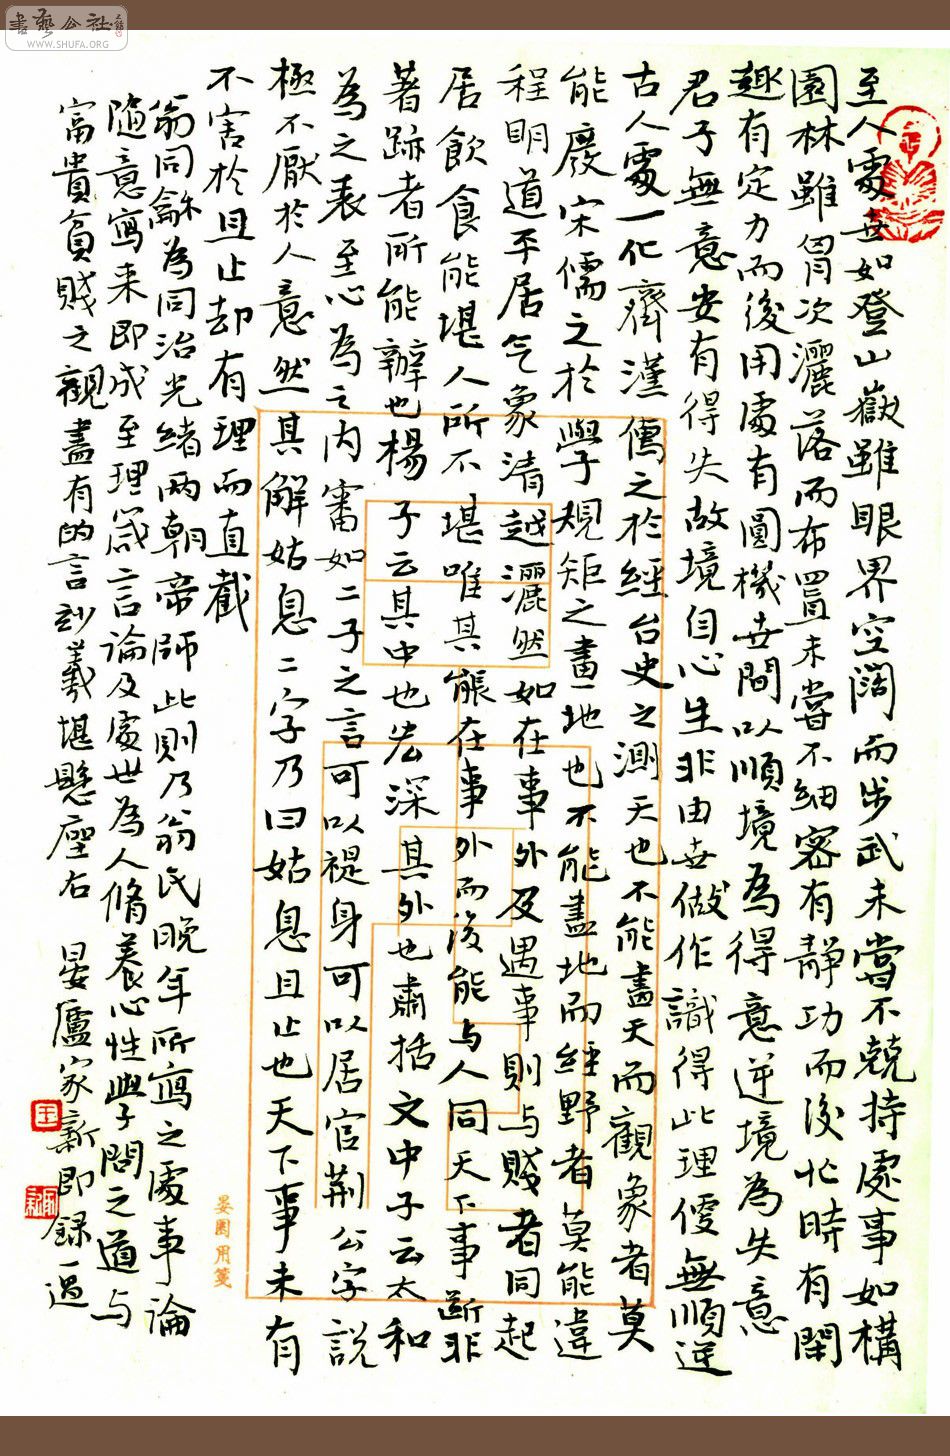 書藝公社
WWW.SHUFA.ORG
至人處世如登山嶽雖眼界空闊而步武未嘗不兢持處事如構
園林雖胷次灑落而布置未嘗不細密有靜功而後忙時有閑
趣有定力而後用處有圓機世間以順境為得意逆境為失意
君子無意安有得失故境自心生非由世做作識得此理儍無順逆
古人處一化齊漢儒之於經台史之測天也不能盡天而觀象者莫
能廢宋儒之於學子規矩之畫地也不能盡地而經野者莫能違
程明道平居气象清越灑然如在事外及遇事則与賤者同起
居飲食能堪人所不堪唯其能在事外而後能与人同天下事斷非
著跡者所能辦也楊子云其中也宏深其外也肅括文中子云太和
為之表至心為之内審如二子之言可以禔身可以居官荆公字説
極不厭於人意然其解姑息二字乃曰姑息且止也天下事未有
不害於且止却有理而直截
翁同龢為同治光緒兩朝帝師此則乃翁氏晚年所寫之處事論
隨意寫来即成至理箴言論及處世為人脩養心性學問之道与
富貴貧賤之觀盡有的言妙義堪懸座右 晏廬家新即録一過
晏園用箋